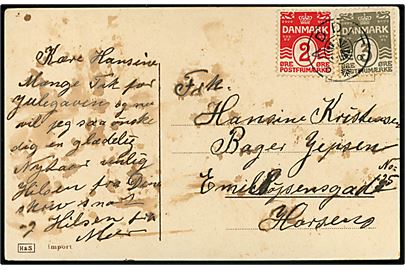 Kære Hansine
Mange Tak for
Julegaven og nu
vil jeg saa ønske
dig en glædelig
Nytaar venlig
Hilsen fra Din
og Hilsen fra
Moer
H&S Import.
DANMARK
2
ØRE ØRE
POSTFRIMÆRKE
DANMARK
ØRE ØRE
POSTFRIMÆRKE
Frk.
Hansine Kristensen
Bager Jepsen
No
Horsens